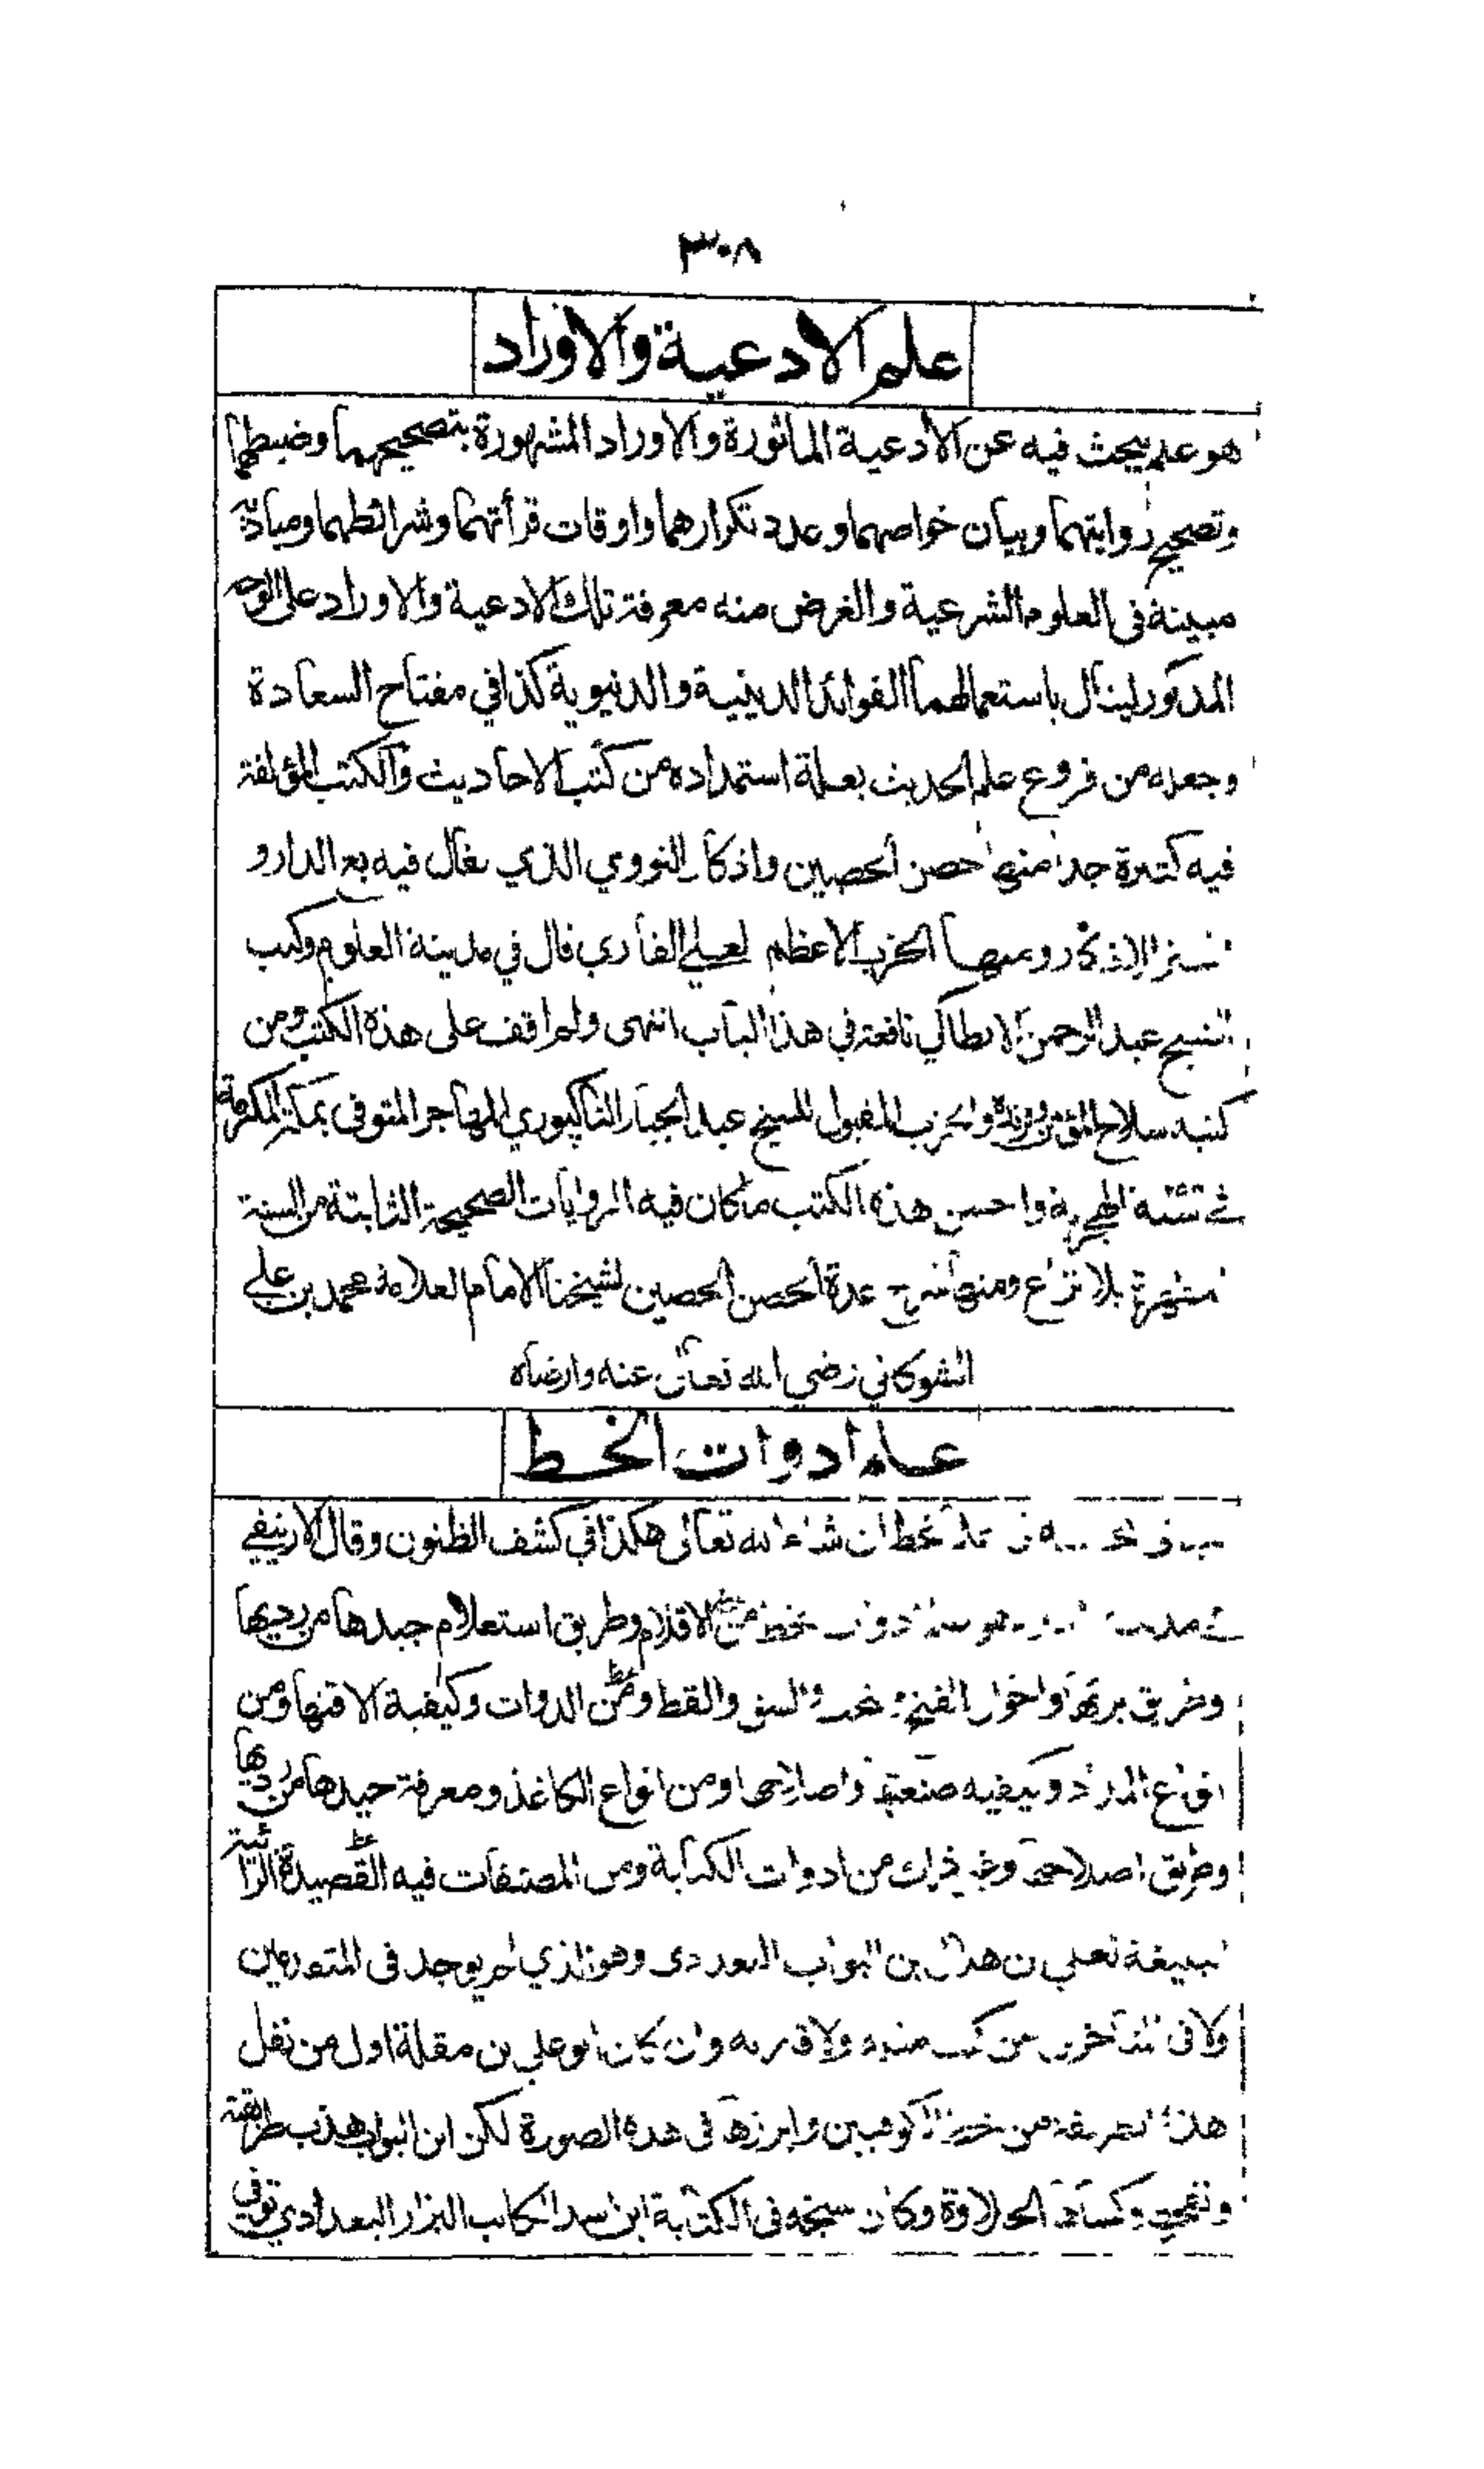 ٣٠٨
علم الادعية والاوراد
هو علم يبحث فيه عن الادعية الماثورة والاوراد المشهورة بتصحيحهما وضبطهما
وتصحيح روايتهما وبيان خواصهما وعدد تكرارهما واوقات قرأتهما وشرائطهما ومباديه
مبينة في العلوم الشرعية والغرض منه معرفة تلك الادعية والاوراد على الوجه
المذكور لينال باستعمالهما الفوائد الدينية والدنيوية كذا في مفتاح السعادة
وجعله من فروع علم الحديث بعلة استمداده من كتب الاحاديث والكتب المؤلفة
فيه كثيرة جدا منها حصن الحصين واذكار النووي الذي يقال فيه بع الدار و
اشتر الاذكار ومنها الحزب الاعظم لعلي القاري قال في مدينة العلوم وكتب
الشيخ عبد الرحمن الانطاكي نافعة في هذا الباب انتهى ولم اقف على هذه الكتب ومن
كتبه سلاح المؤمن والحزب المقبول للشيخ عبد الجبار الناكپوري المهاجر المتوفى بمكة المكرمة
الهجرية واحسن هذه الكتب ما كان فيه الروايات الصحيحة الثابتة من السنة
المطهرة بلا نزاع ومنها شرح عدة الحصن الحصين لشيخنا الامام العلامة محمد بن علي
الشوكاني رضي الله تعالى عنه وارضاه
علم ادوات الخط
علم الخط ان شاء الله تعالى هكذا في كشف الظنون وقال الارنيقي
في الخط من الاقلام وطريق استعلام جيدها من رديها
وطريق بريها واحوال الفتح والنحت والشق والقط ومن الدوات وكيفية الاقتها ومن
انواع المداد وكيفية صنعتها واصلاحها ومن انواع الكاغذ ومعرفة جيدها من رديها
وطريق اصلاحها وغير ذلك من ادوات الكتابة ومن المصنفات فيه القصيدة الرائية
البليغة لعلي بن هلال بن البواب البغدادي وهو الذي لم يوجد في المتقدمين
ولا في المتأخرين من كتب مثله ولا قاربه وان كان ابو علي بن مقلة اول من نقل
هذه الطريقة من خط الكوفيين وابرزها في هذه الصورة لكن ابن البواب هذب طريقته
ونقحها وكساها الحلاوة وكان شيخه في الكتابة ابن اسد الكاتب البزار البغدادي توفي